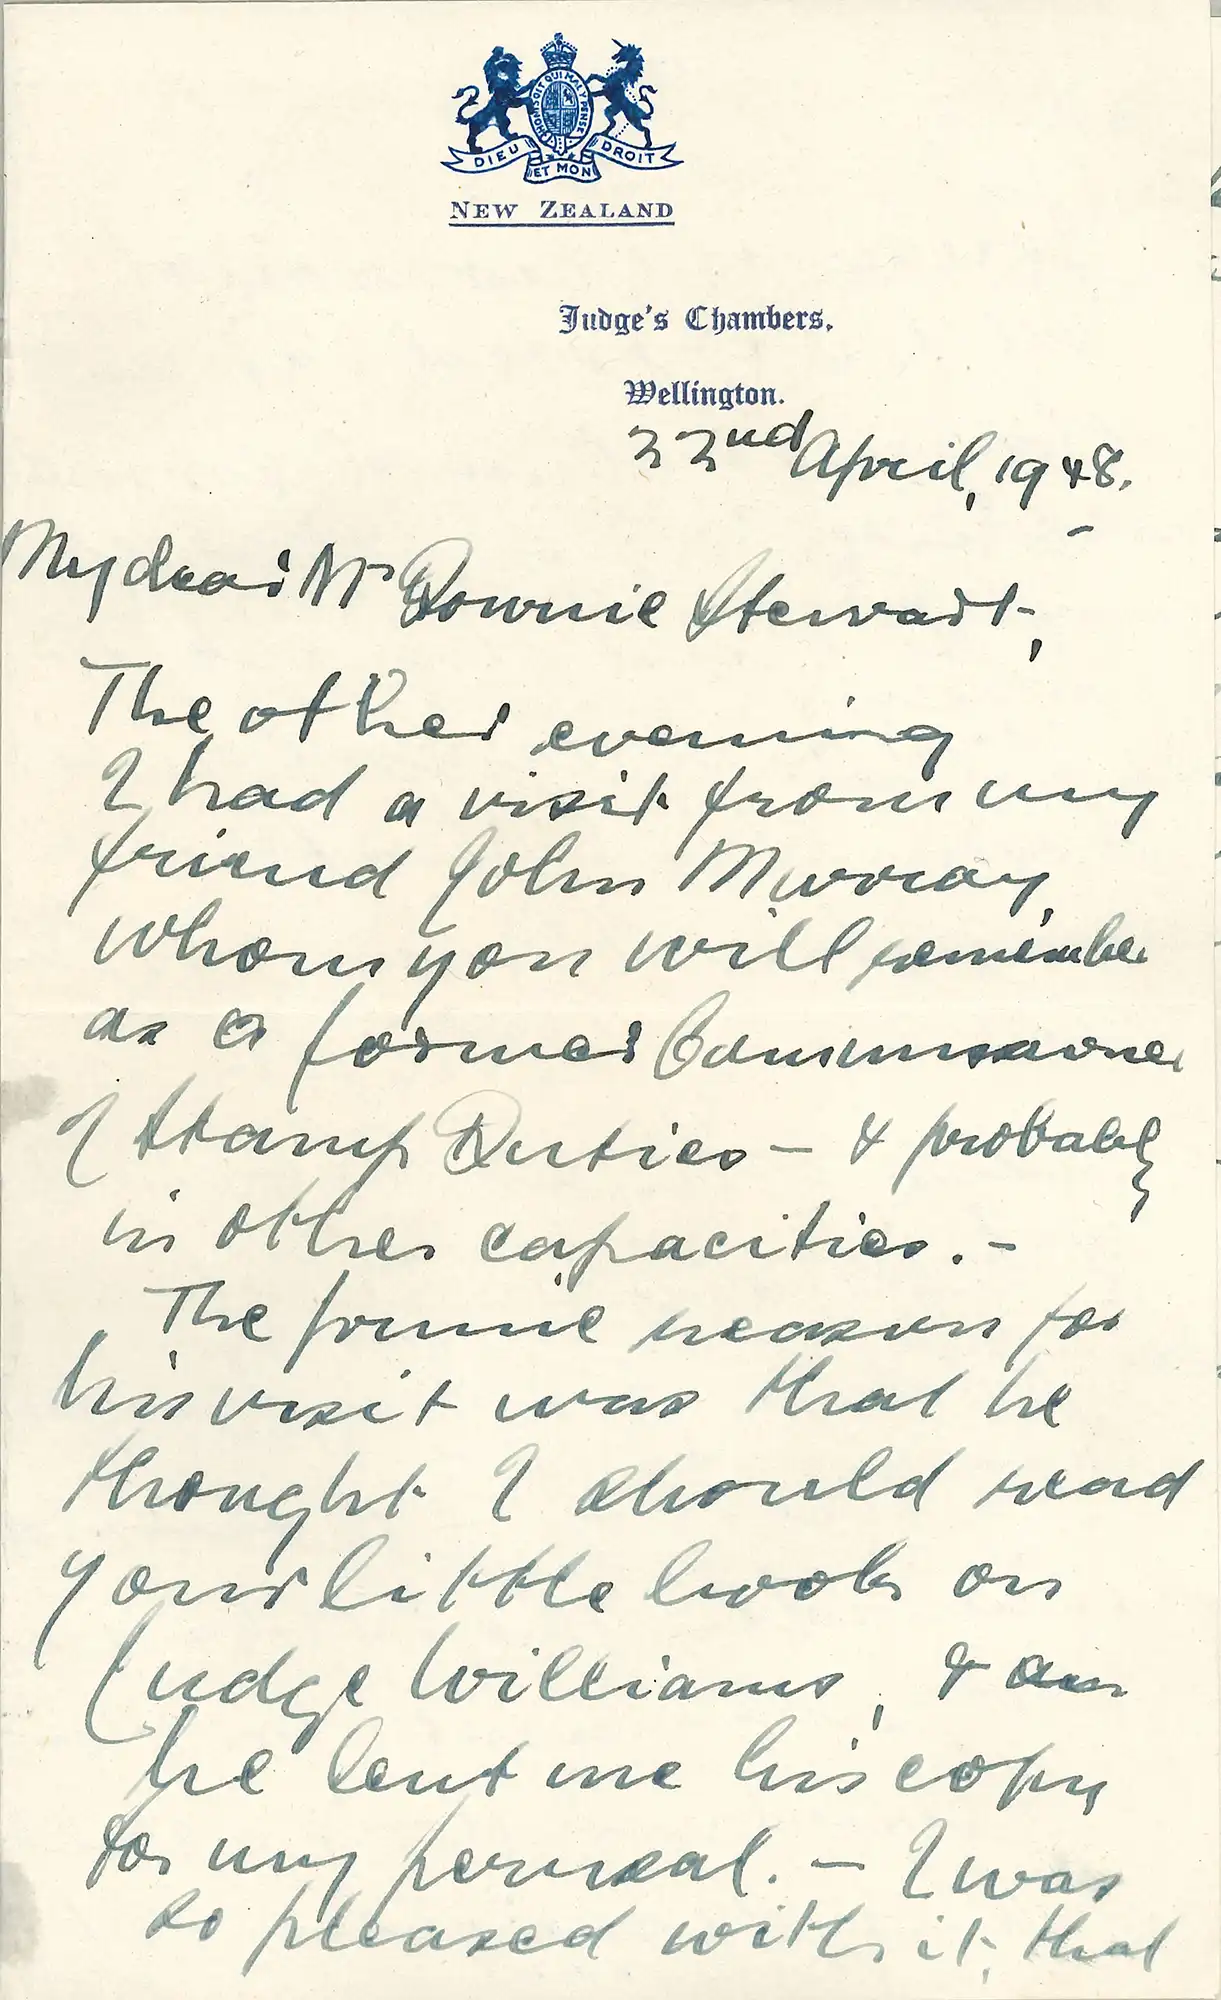 HONI SOIT QUI MAL Y PENSE
DIEU ET MON DROIT
NEW ZEALAND
Judge's Chambers,
Wellington.
22nd April, 1948.
My dear Mr Downie Stewart,
The other evening
I had a visit from my
friend John Murray,
whom you will remember
as a former Commissioner
of Stamp Duties – & probably
in other capacities. –
The prime reason for
his visit was that he
thought I should read
your little book on
Judge Williams, &
he lent me his copy
for my perusal. – I was
so pleased with it, that